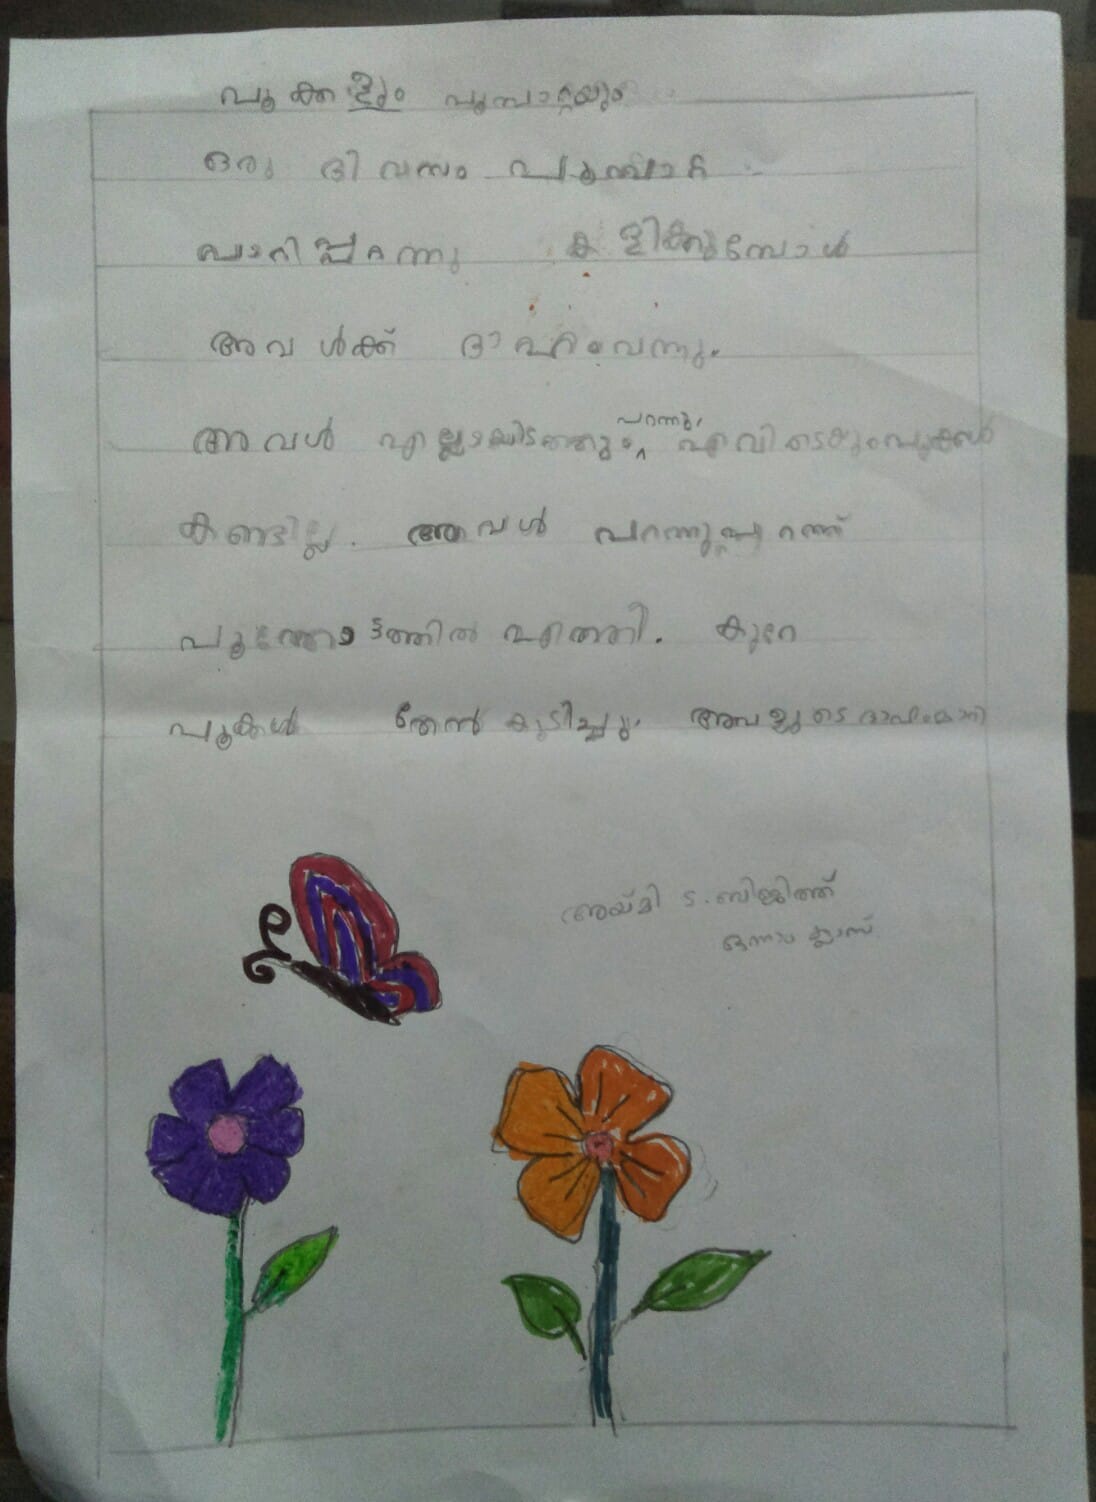 പൂക്കളും പൂമ്പാറ്റയും
ഒരു ദിവസം പൂമ്പാറ്റ
പാറിപ്പറന്നു കളിക്കുമ്പോൾ
അവൾക്ക് ദാഹംവന്നു.
അവൾ എല്ലായിടത്തും പറന്നു, എവിടെയുംപൂക്കൾ
കണ്ടില്ല. അവൾ പറന്നുപറന്ന്
പൂന്തോട്ടത്തിൽ എത്തി. കുറേ
പൂക്കൾ തേൻ കുടിച്ചു. അവളുടെ ദാഹംമാറി
അയ്മി ട. ബിജിത്ത്
ഒന്നാം ക്ലാസ്